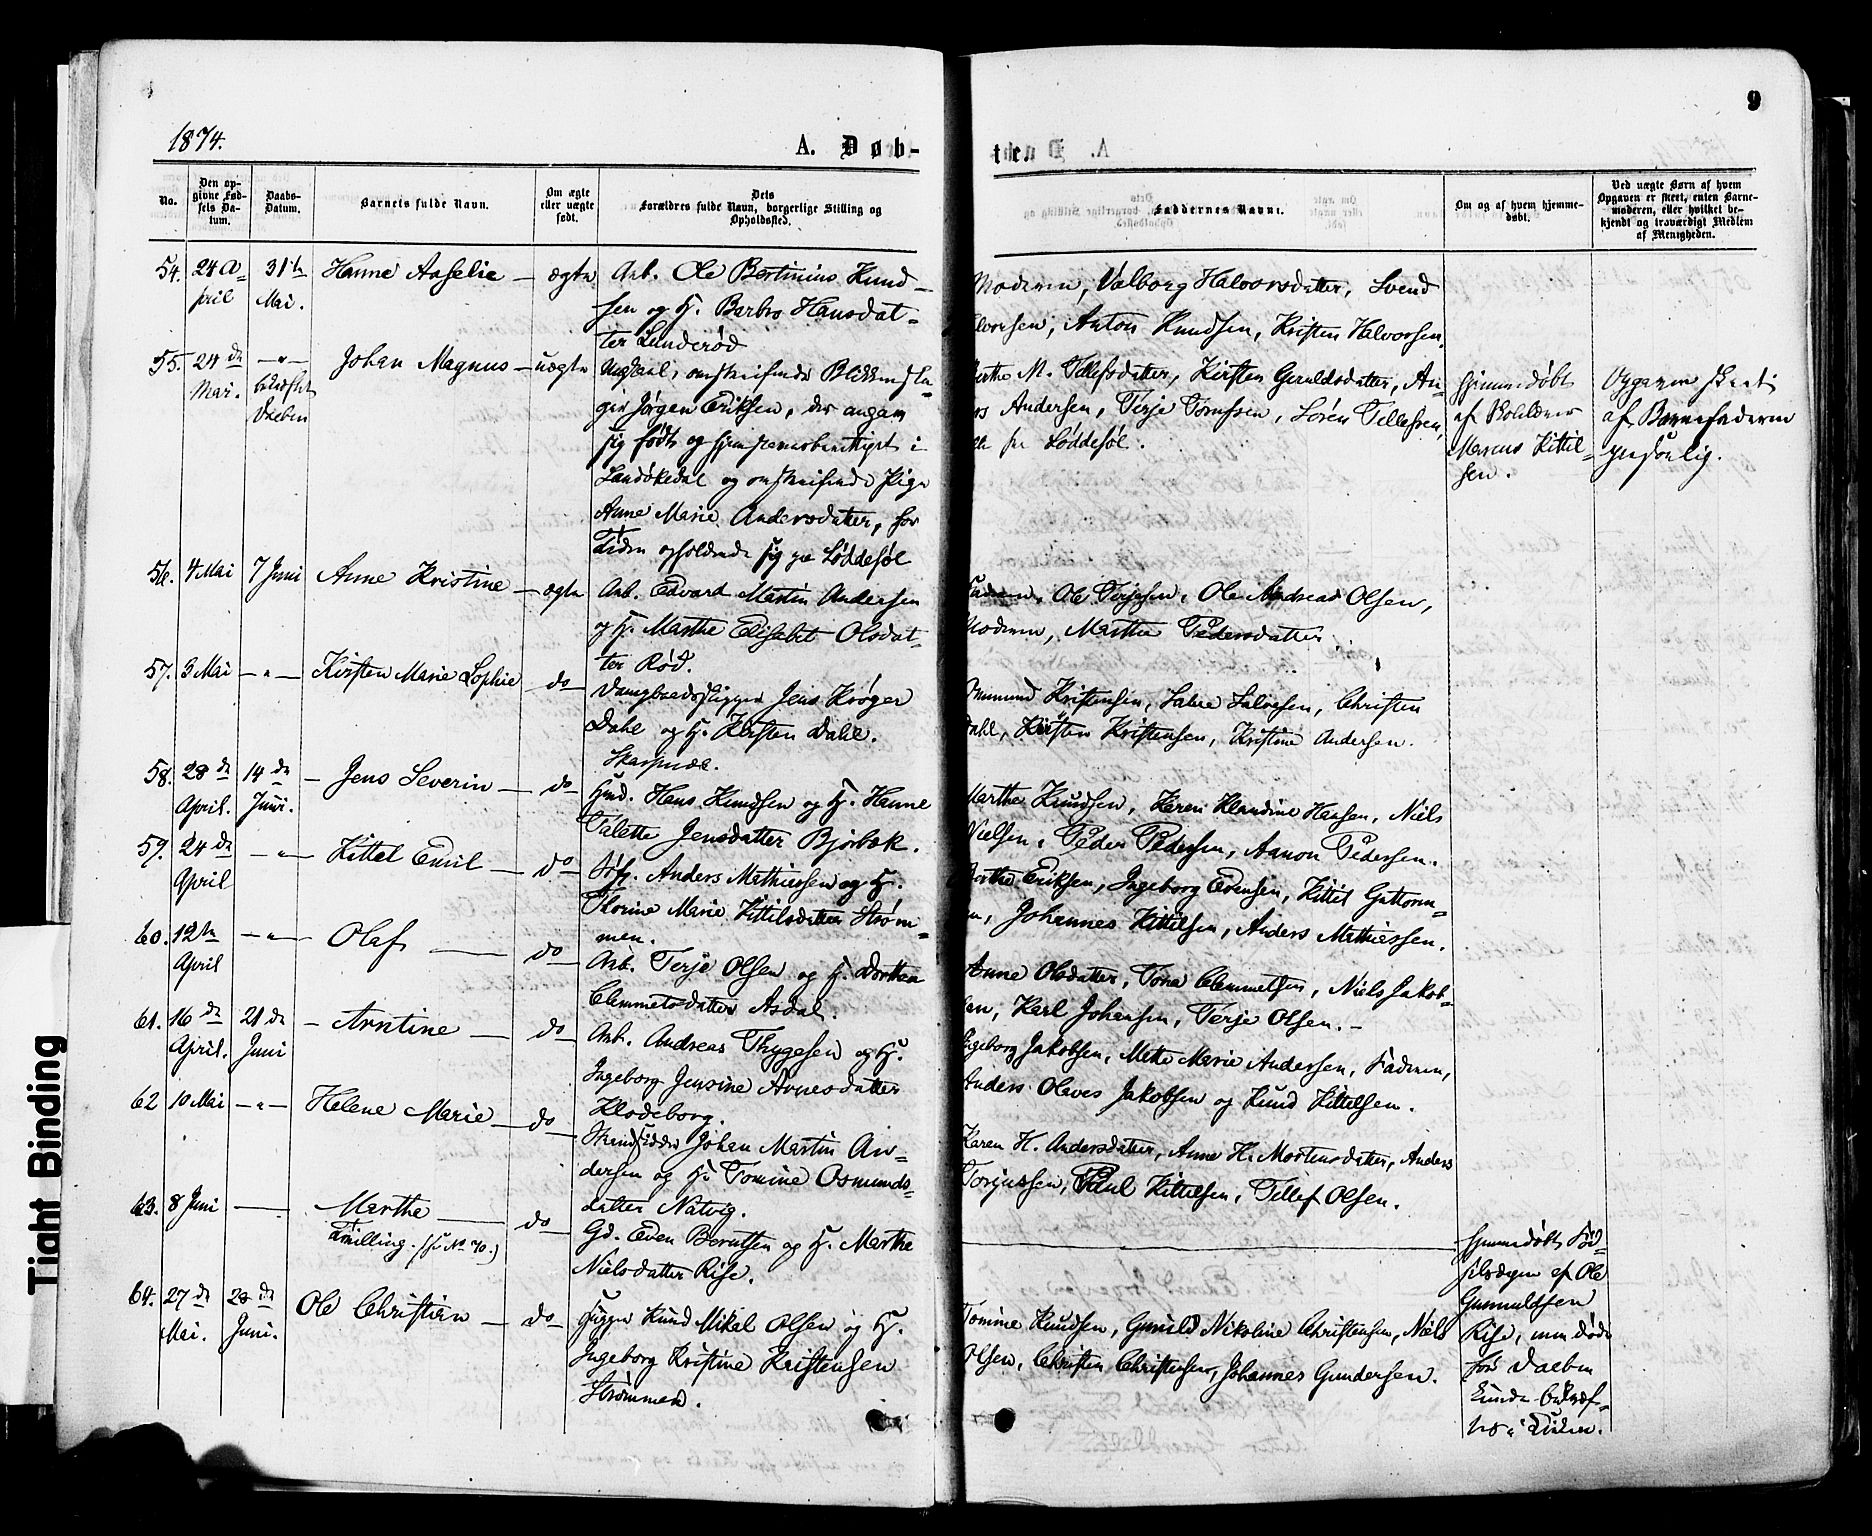 9
1874.
A. Døb-
te.
No.
Den op-
givne Fød-
sels Da-
tum.
Daabs-
Datum.
Barnets fulde Navn.
Om ægte
eller uægte
født.
Dets
Forældres fulde Navn, borgerlige Stilling og
Opholdssted.
Faddernes Navne.
Om og af hvem hjemme-
døbt.
Ved uægte Børn af hvem
Opgaven er skeet, enten Barne-
moderen, eller hvilket be-
kjendt og troværdigt Medlem
af Menigheden.
54. 24 A-
pril
31te
Mai.
Hanne Aselie
ægte
Arb. Ole Bertinius Knud-
sen og H. Barbro Hansdat-
ter Lunderød
Moderen, Valborg Halvorsdatter, Svend
Halvorsen, Anton Knudsen, Kristen Halvorsen.
55. 24de
Mai.
-"-
Daaben
Johan Magnus
uægte
Ungkarl, omstreifende Blikkensla-
ger Jørgen Eriksen, der angav
sig født og hjemstavnsberettiget i
Sandøkedal og omstreifende Pige
Anne Marie Andersdatter, for
Tiden opholdende sig paa Løddesøl
M. Tellefsdatter, Kirsten Geruldsdatter, An-
Andersen, Terje Tomssen, Søren Tellefsen,
Løddesøl.
hjemmedøbt
af Skolelærer
Marcus Kittil-
sen.
Opgaven skeet
af Barnefaderen
personlig.
56. 4 Mai
7 Juni
Anne Kristine
ægte
Arb. Edvard Martin Andersen
og H. Marthe Elisabet Olsdat-
ter Rød.
Faderen, Ole Terjesen, Ole Andreas Olsen,
Moderen, Marthe Pedersdatter.
57. 3 Mai
-"-
Kirsten Marie Sophie
do
Dampbaadsskipper Jens Krøger
Dahl og H. Kirsten Dahl.
Skarpnæs.
Kristensen, Salve Salvesen, Christen
Dahl, Kirsten Kristensen, Kristine Andersen.
58. 28de
April.
14de
Juni.
Jens Severin
do
Hmd. Hans Knudsen og H. Hanne
Talette Jensdatter Bjorbæk.
Marthe Knudsen, Karen Klaudine Hansen, Niels
Nielsen, Peder Pedersen, Aanon Pedersen.
59. 24de
April
-"-
Kittel Emil
do
Søf. Anders Mathiesen og H.
Thorine Marie Kittilsdatter Strøm-
men.
Berthe Eriksen, Ingeborg Evensen, Kittil Guttorm-
sen, Johannes Kittilsen, Anders Mathiessen.
60. 12te
April
-"-
Olaf
do
Arb. Terje Olsen og H. Dorthea
Clemmetsdatter Asdal.
Anne Olsdatter, Tone Clemmetsen, Niels Jakob-
sen, Karl Johansen, Terje Olsen.-
61. 16de
April.
21de
Juni
Arntine
do
Arb. Andreas Thygesen og H.
Ingeborg Jensine Arnesdatter
Klodeborg.
Ingeborg Jakobsen, Mette Marie Andersen, Faderen,
Anders Olaves Jakobsen og Knud Kittelsen.
62 10 Mai
-"-
Helene Marie
do
Strandsidder Johan Martin An-
dersen og H. Tomine Osmunds-
datter Natvig.
Karen H. Andersdatter, Anne H. Mortensdatter, Anders
Torjussen, Paul Kittelsen, Tellef Olsen.
63. 8 Juni
Marthe
Tvilling. (se No 70.)
do
Gd. Even Berntsen og H. Marthe
Nielsdatter Rise.
Hjemmedøbt Fød-
selsdagen af Ole
Gunnuldsen
Rise, men døde
før Daaben
kunde bekræf-
tes i Kirken.
64. 27de
Mai.
28de
Juni.
Ole Christian
do
Skipper Knud Mikal Olsen og H.
Ingeborg Kristine Kristensen
Strømmen.
Tomine Knudsen, Gunild Nikoline Christensen, Niels
Olsen, Christen Christensen, Johannes Gundersen.
Tight Binding